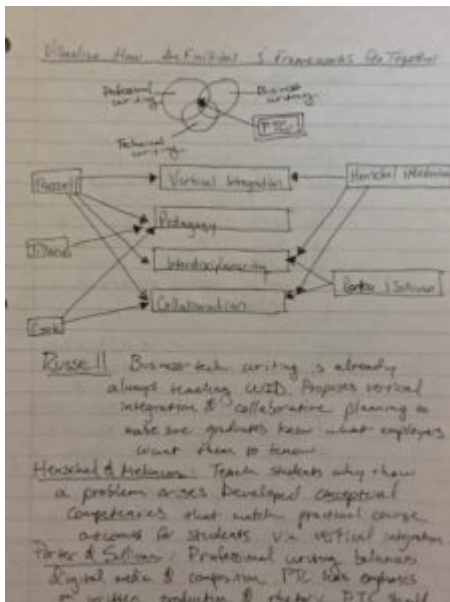 Visualize How Definitions & Frameworks Go Together
Professional
writing
Business
writing
Technical
writing
PTC
Russell
Vertical Integration
Henschel
Pedagogy
Interdisciplinarity
Porter & Sullivan
Collaboration
Cook
Russell Business tech writing is already
always teaching WID. Proposes vertical
integration & collaborative planning to
make sure graduates know what employers
want them to know
Henschel & Meloncon: Teach students why & how
a problem arises Developed conceptual
competencies that match practical course
outcomes for students via vertical integration
Porter & Sullivan: Professional writing balances
digital media & composition. PTC has emphasis
on written production & rhetoric PTC should